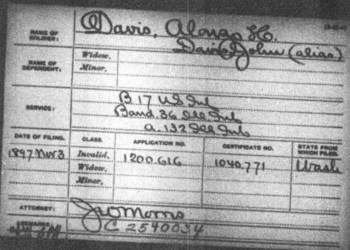 NAME OF SOLDIER: Davis, Alonzo H.
Davis, John (alias)
NAME OF DEPENDENT: Widow,
Minor,
SERVICE: B. 17 U.S. Inf.
Band. 36 Ill Inf.
A. 132 Ill Inf.
DATE OF FILING. CLASS. APPLICATION NO. CERTIFICATE NO. STATE FROM WHICH FILED.
1897 Nov 3 Invalid, 1200.616 1040.771 Wash
Widow,
Minor,
ATTORNEY: Morris
C 2540034